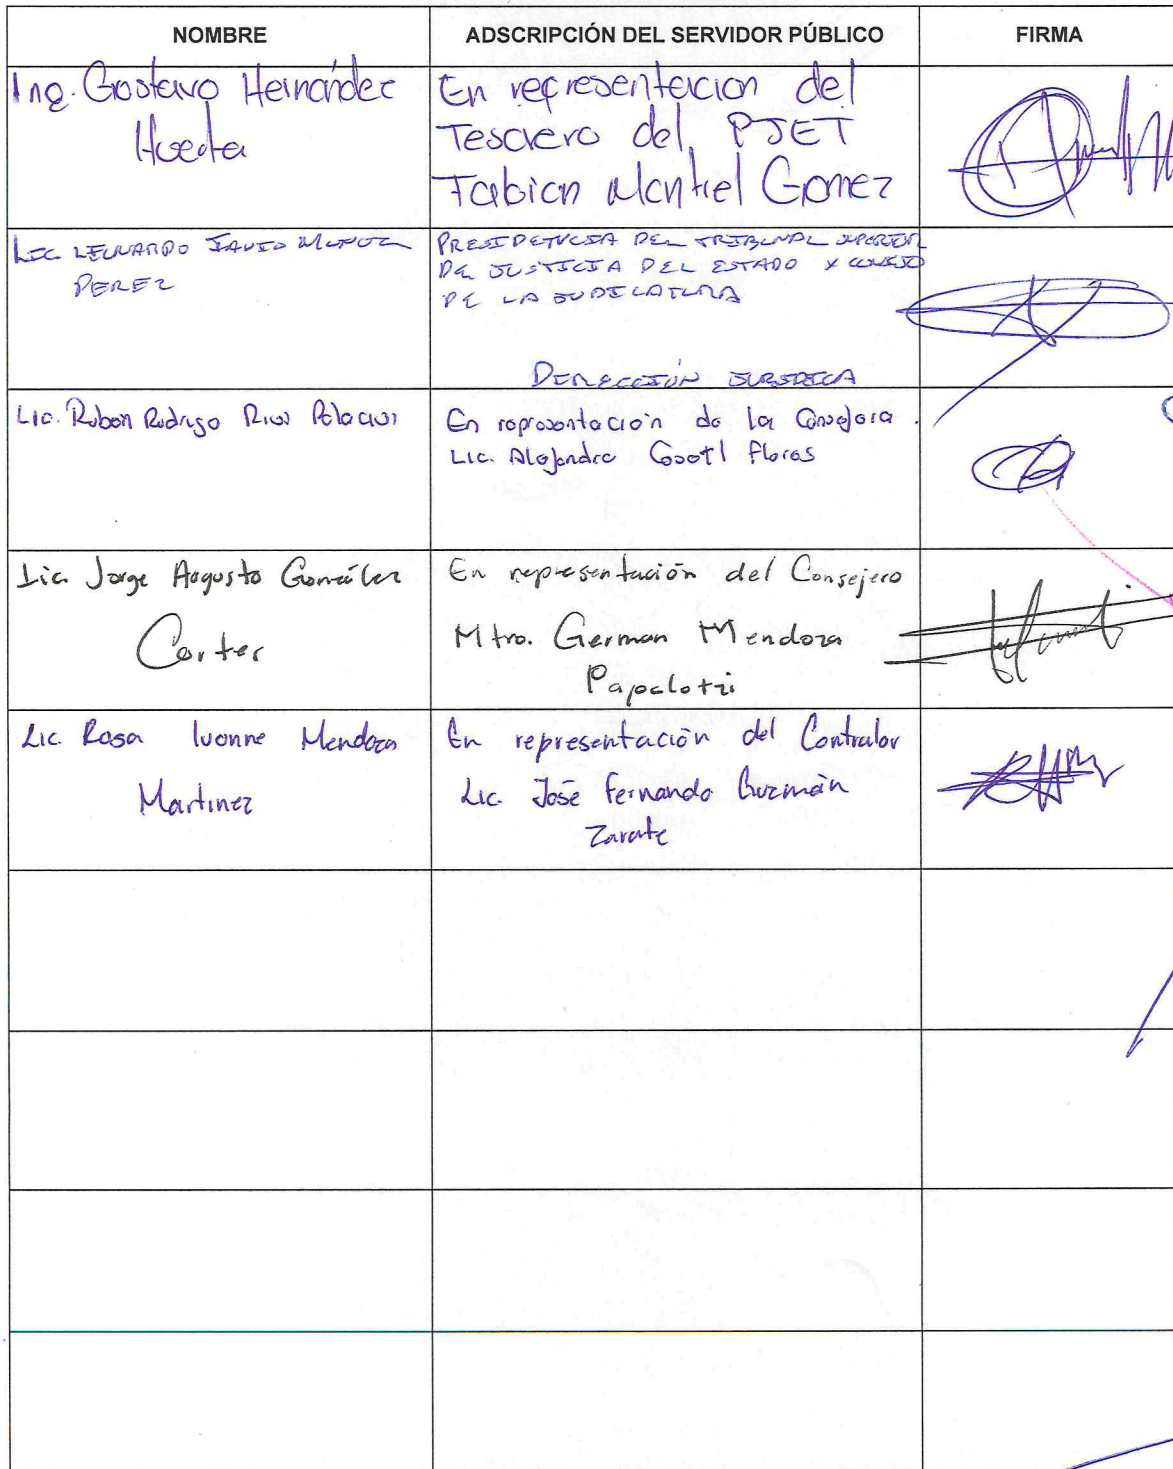 NOMBRE
ADSCRIPCIÓN DEL SERVIDOR PÚBLICO
FIRMA
Ing. Gustavo Hernández
Huerta
En representacion del
Tesorero del PJET
Fabian Montiel Gomez
LIC LEONARDO JAVIER MUÑOZ
PEREZ
PRESIDENCIA DEL TRIBUNAL SUPERIOR
DE JUSTICIA DEL ESTADO Y CONSEJO
DE LA JUDICATURA
DIRECCIÓN JURIDICA
Lic. Ruben Rodrigo Rios Palacios
En representación de la Consejera.
Lic. Alejandra Cosetl Flores
Lic. Jorge Augusto González
Cortes
En representación del Consejero
Mtro. German Mendoza
Papalotzi
Lic. Rosa Ivonne Mendoza
Martinez
En representación del Contralor
Lic. José Fernando Guzmán
Zarate